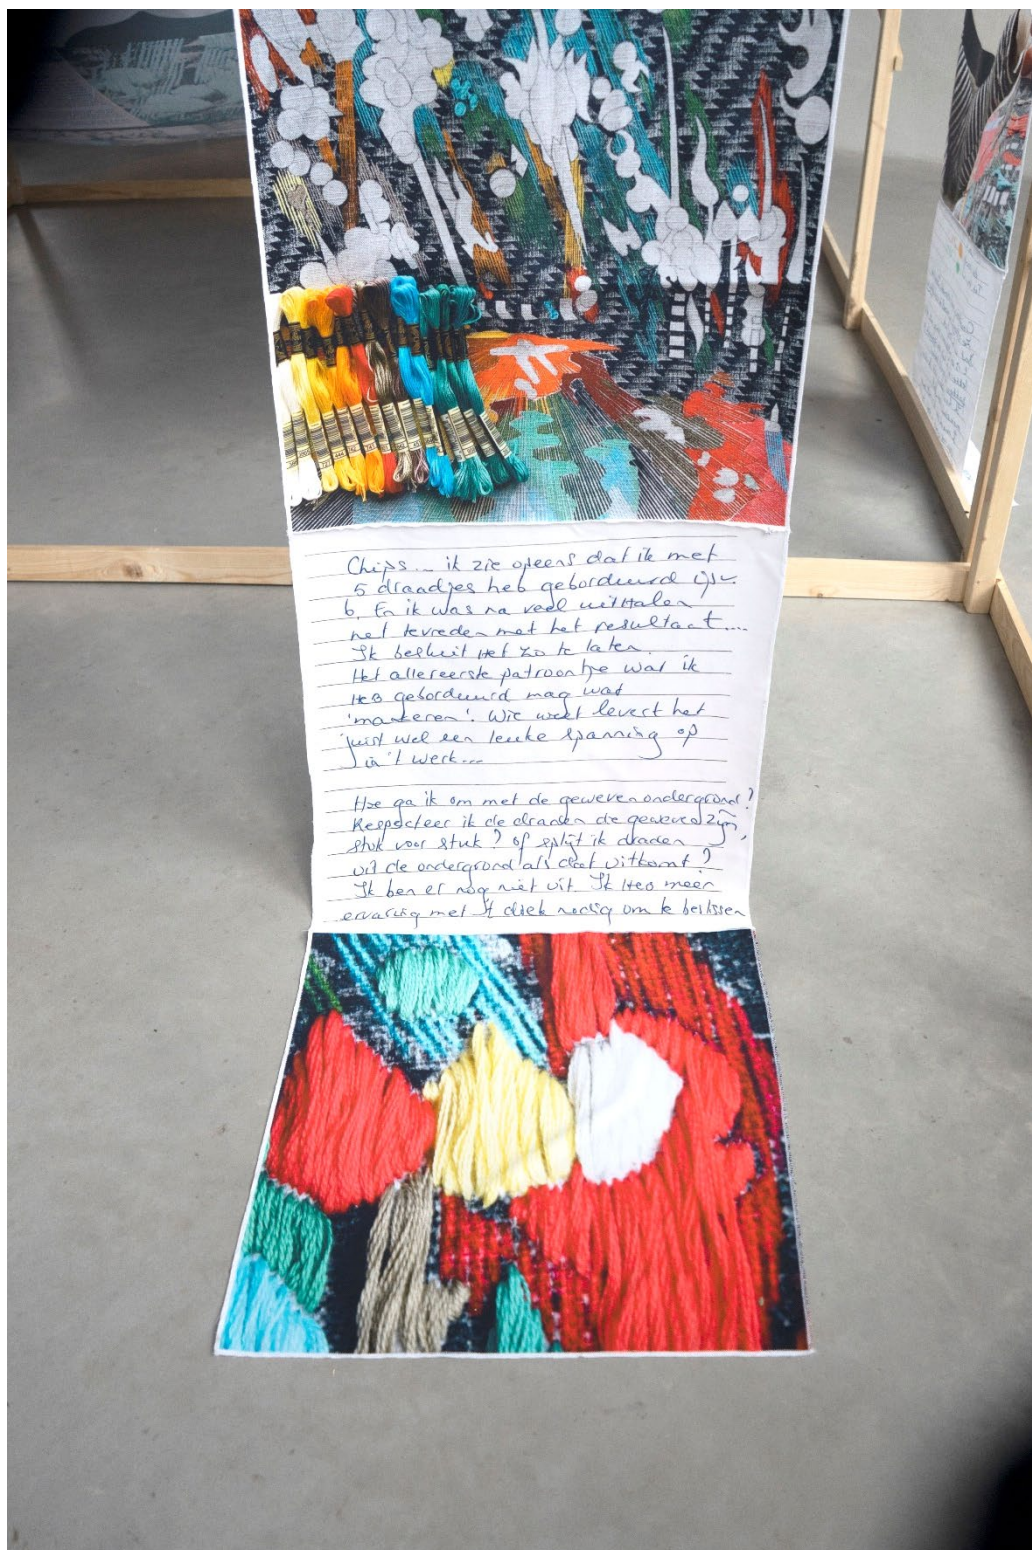 Chips... ik zie opeens dat ik met
5 draadjes heb geborduurd ipv
6. En ik was na veel uithalen
net tevreden met het resultaat....
Ik besluit het zo te laten.
Het allereerste patroontje wat ik
heb geborduurd mag wat
'mankeren'. Wie weet levert het
juist wel een leuke spanning op
in 't werk...
Hoe ga ik om met de geweven ondergrond?
Respecteer ik de draden die geweven zijn,
stuk voor stuk? of splijt ik draden
uit de ondergrond als dat uitkomt?
Ik ben er nog niet uit. Ik heb meer
ervaring met 't doek nodig om te beslissen